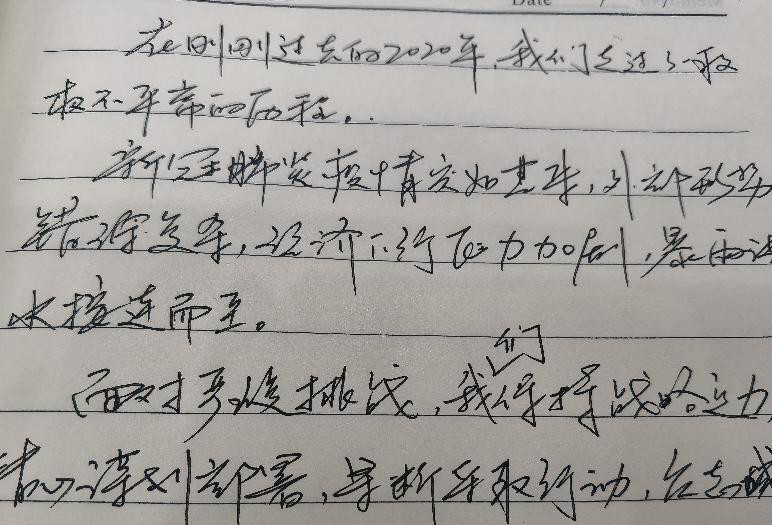 Date / /
在刚刚过去的2020年,我们走过了一段
极不平常的历程.
新冠肺炎疫情突如其来,外部形势
错综复杂,经济下行压力加剧,暴雨洪
水接连而至。
们
面对多重挑战,我保持战略定力
精心谋划部署,果断采取行动,